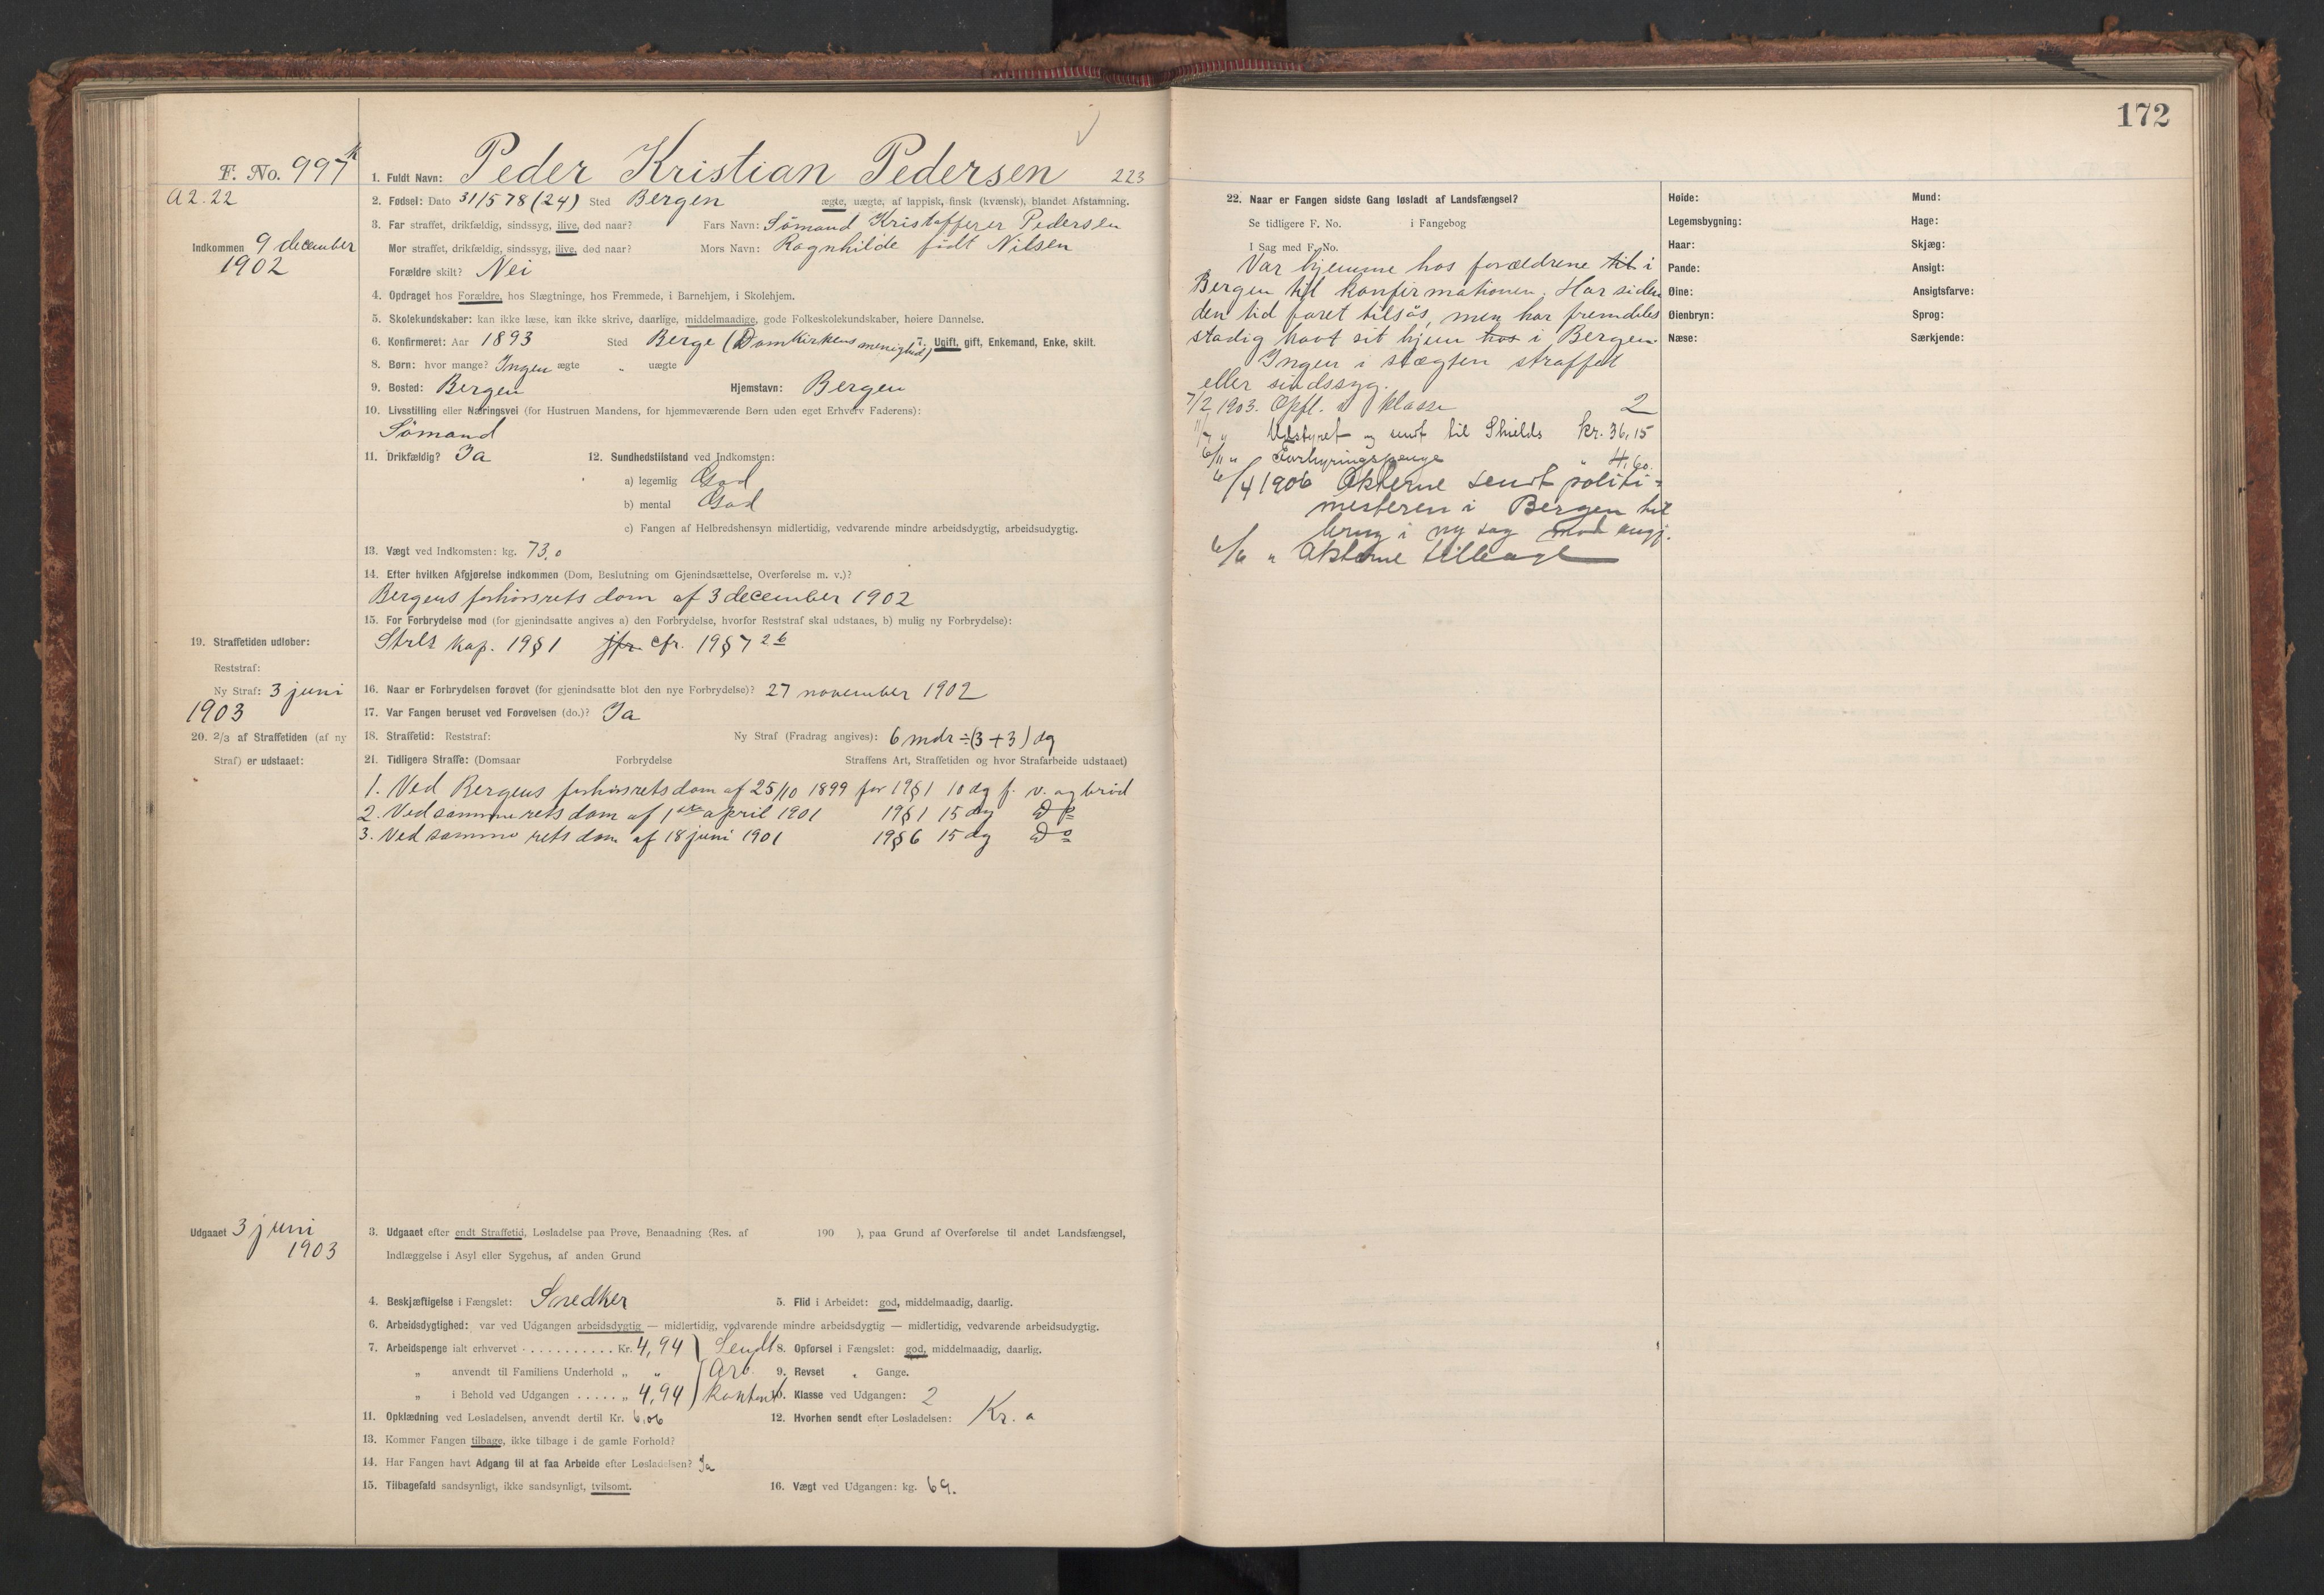 F. No. 997
A 2.22
Indkommen 9 december
1902
1. Fuldt Navn: Peder Kristian Pedersen 223
2. Fødsel: Dato 31/5 78 (24) Sted Bergen ægte, uægte, af lappisk, finsk (kvænsk), blandet Afstamning.
3. Far straffet, drikfældig, sindssyg, ilive, død naar? Fars Navn: Sömand Kristofferer Pedersen
Mor straffet, drikfældig, sindssyg, ilive, død naar? Mors Navn: Ragnhilde födt Nilsen
Forældre skilt? Nei
4. Opdraget hos Forældre, hos Slægtninge, hos Fremmede, i Barnehjem, i Skolehjem.
5. Skolekundskaber: kan ikke læse, kan ikke skrive, daarlige, middelmaadige, gode Folkeskolekundskaber, høiere Dannelse.
6. Konfirmeret: Aar 1893 Sted Berge (Domkirkens menighed) 7. Ugift, gift, Enkemand, Enke, skilt.
8. Børn: hvor mange? Ingen ægte „ uægte
9. Bosted: Bergen Hjemstavn: Bergen
10. Livsstilling eller Næringsvei (for Hustruen Mandens, for hjemmeværende Børn uden eget Erhverv Faderens):
Sömand
11. Drikfældig? Ja 12. Sundhedstilstand ved Indkomsten:
a) legemlig God
b) mental God
c) Fangen af Helbredshensyn midlertidig, vedvarende mindre arbeidsdygtig, arbeidsudygtig.
13. Vægt ved Indkomsten: kg. 73,0
14. Efter hvilken Afgjørelse indkommen (Dom, Beslutning om Gjenindsættelse, Overførelse m. v.)?
Bergens forhörsrets dom af 3 december 1902
15. For Forbrydelse mod (for gjenindsatte angives a) den Forbrydelse, hvorfor Reststraf skal udstaaes, b) mulig ny Forbrydelse):
Strlz kap. 19 § 1 jfr cfr. 19 § 7 2 b
19. Straffetiden udløber:
Reststraf:
Ny Straf: 3 juni
1903
16. Naar er Forbrydelsen forøvet (for gjenindsatte blot den nye Forbrydelse)? 27 november 1902
17. Var Fangen beruset ved Forøvelsen (do.)? Ja
20. 2/3 af Straffetiden (af ny
Straf) er udstaaet:
18. Straffetid: Reststraf: Ny Straf (Fradrag angives): 6 mdr ÷ (3 + 3) dg
21. Tidligere Straffe: (Domsaar Forbrydelse Straffens Art, Straffetiden og hvor Strafarbeide udstaaet)
1. Ved Bergens forhörsrets dom af 25/10 1899 for 19 § 1 10 dg f. v. og bröd
2. Ved samme rets dom af 1ste april 1901 19 § 1 15 dg Do
3. Ved samme rets dom af 18 juni 1901 19 § 6 15 dg Do
Udgaaet 3 juni
1903
3. Udgaaet efter endt Straffetid, Løsladelse paa Prøve, Benaadning (Res. af 190 ), paa Grund af Overførelse til andet Landsfængsel,
Indlæggelse i Asyl eller Sygehus, af anden Grund
4. Beskjæftigelse i Fængslet: Snedker 5. Flid i Arbeidet: god, middelmaadig, daarlig.
6. Arbeidsdygtighed: var ved Udgangen arbeidsdygtig — midlertidig, vedvarende mindre arbeidsdygtig — midlertidig, vedvarende arbeidsudygtig.
7. Arbeidspenge ialt erhvervet . . . . . . . . . . . Kr. 4,94 Sendt 8. Opførsel i Fængslet: god, middelmaadig, daarlig.
„ anvendt til Familiens Underhold „ „ Arb. 9. Revset „ Gange.
„ i Behold ved Udgangen . . . . . „ 4,94 kontoret 10. Klasse ved Udgangen: 2
11. Opklædning ved Løsladelsen, anvendt dertil Kr. 6,06 12. Hvorhen sendt efter Løsladelsen: Kr. a
13. Kommer Fangen tilbage, ikke tilbage i de gamle Forhold?
14. Har Fangen havt Adgang til at faa Arbeide efter Løsladelsen? Ja
15. Tilbagefald sandsynligt, ikke sandsynligt, tvilsomt. 16. Vægt ved Udgangen: kg. 69.
172
22. Naar er Fangen sidste Gang løsladt af Landsfængsel?
Se tidligere F. No. i Fangebog
I Sag med F. No.
Var hjemme hos forældrene til i
Bergen til konfirmationen. Har siden
den tid faret tilsös, men har fremdeles
stadig havt sit hjem hos i Bergen.
Ingen i slægten straffet
eller sindssyg.
7/2 1903. Opfl. i klasse 2
„ Udstyret og sendt til Shields kr. 36,15
6/11 „ Forhyringspenge „ 4,60.
6/4 1906 Akterne sendt politi-
mesteren i Bergen til
brug i ny sag mod angj.
6/6 „ Akterne tilbage
Høide: Mund:
Legemsbygning: Hage:
Haar: Skjæg:
Pande: Ansigt:
Øine: Ansigtsfarve:
Øienbryn: Sprog:
Næse: Særkjende: